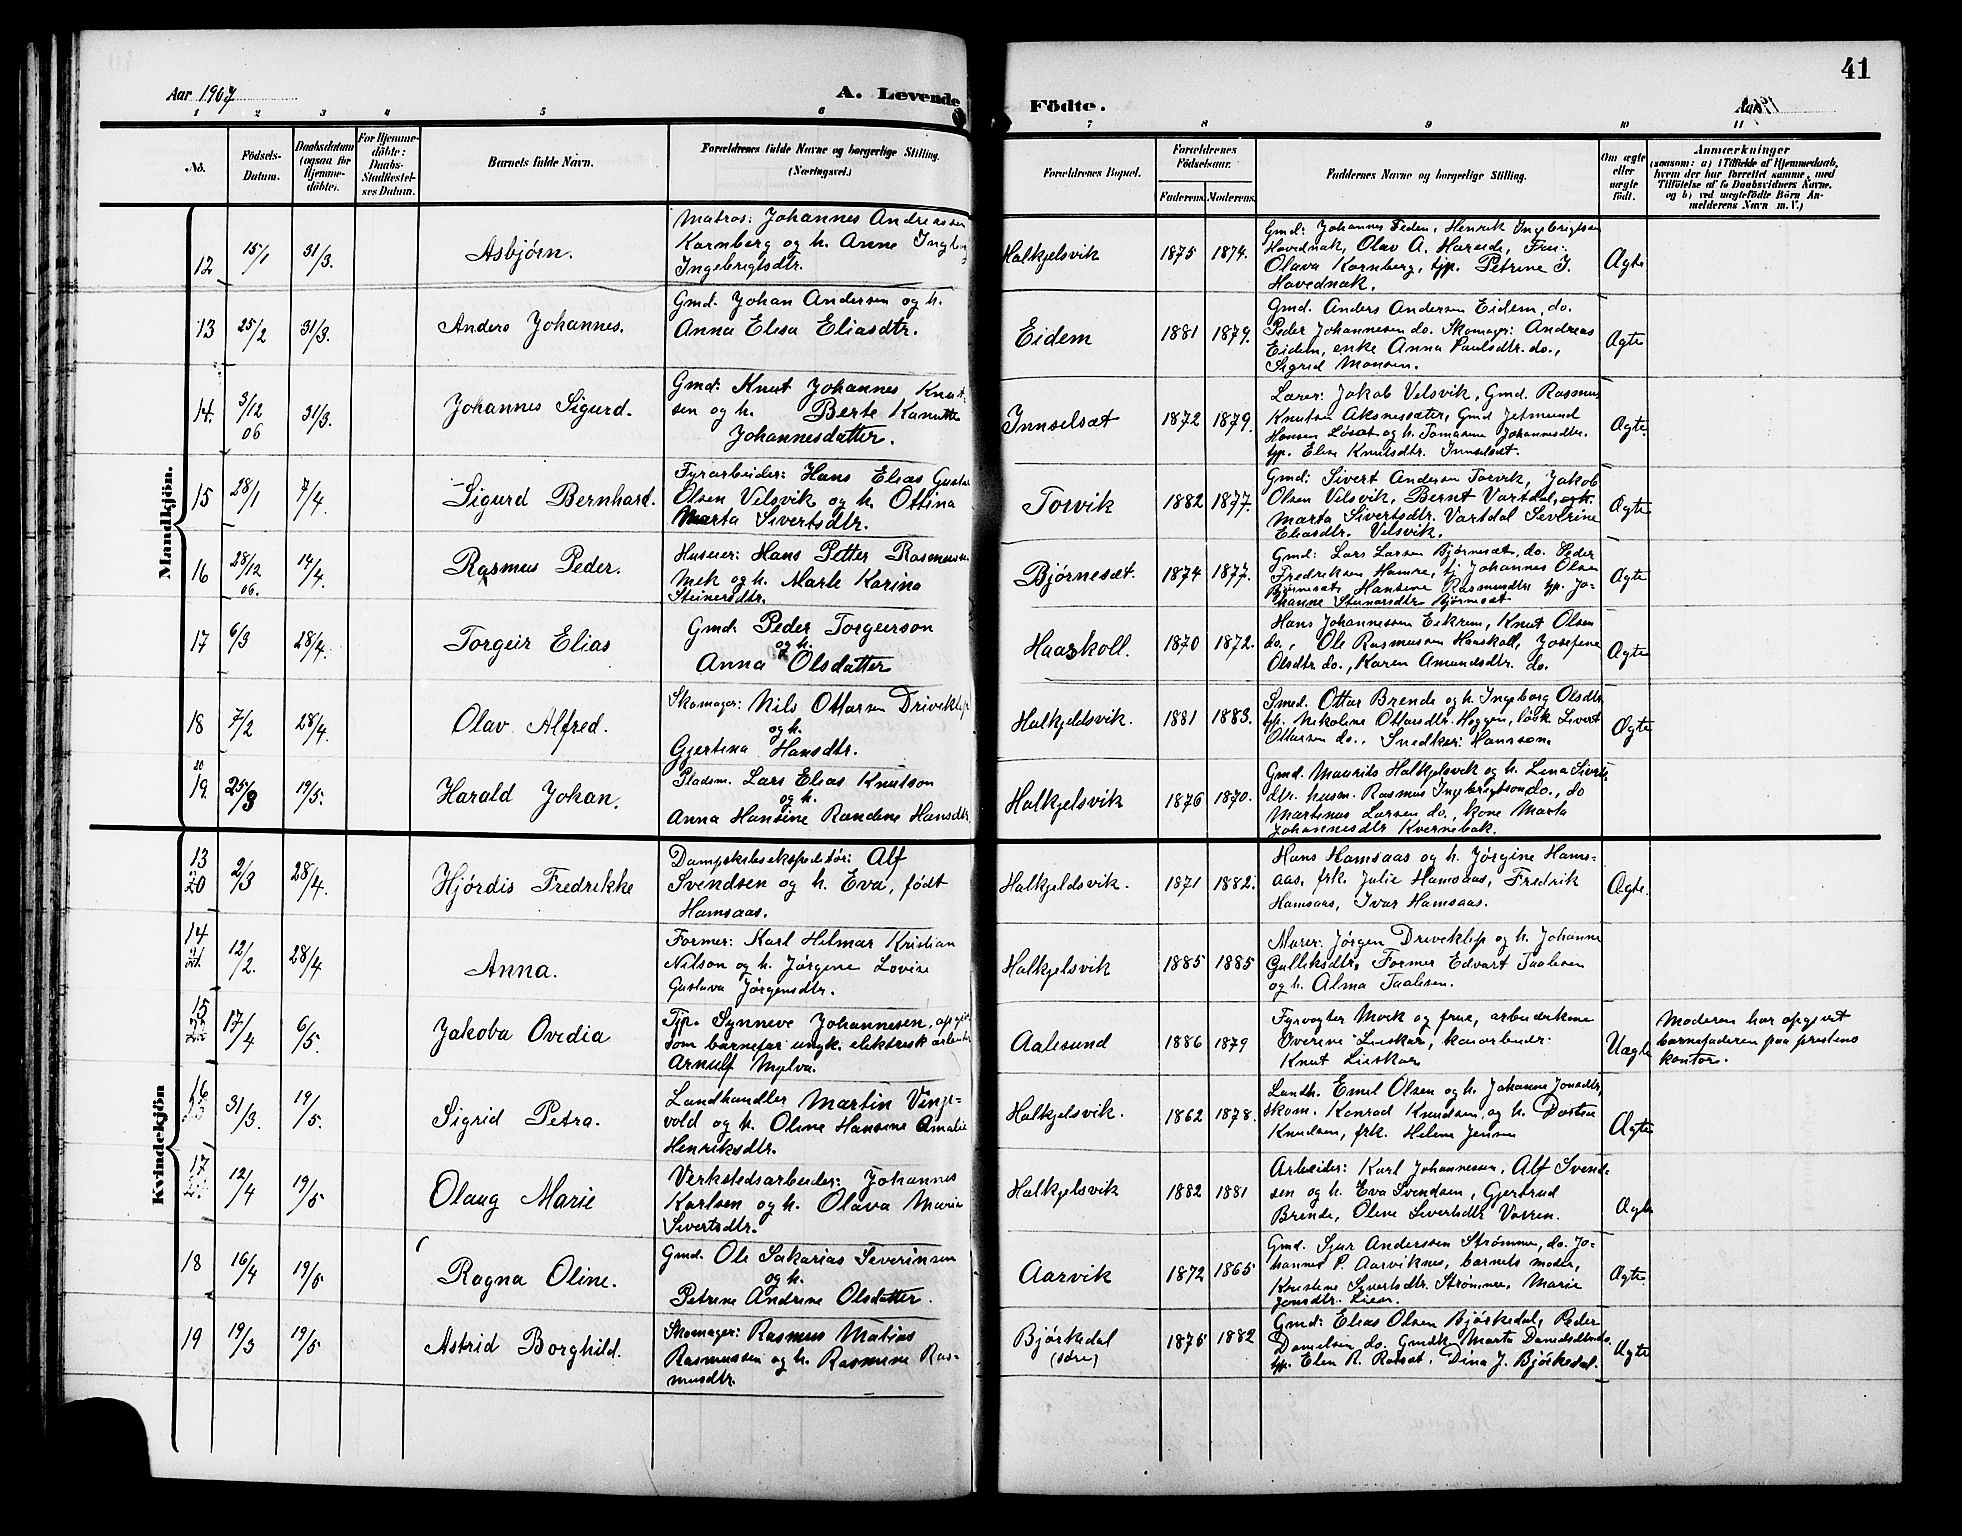 Aar 1907
A. Levende
Födte.
41
1 2 3 4 5 6 7 8 9 10 11
No.
Födsels-
Datum.
Daabsdatum
(ogsaa for
Hjemme-
döbte).
For Hjemme-
döbte:
Daabs-
Stadfæstel-
ses Datum.
Barnets fulde Navn.
Forældrenes fulde Navne og borgerlige Stilling.
(Næringsvei.)
Forældrenes Bopæl.
Forældrenes
Födselsaar.
Faderens. Moderens.
Faddernes Navne og borgerlige Stilling.
Om ægte
eller
uægte
födt.
Anmærkninger
(saasom: a) i Tilfælde af Hjemmedaab,
hvem der har forrettet samme, med
Tilföielse af to Daabsvidners Navne,
og b) ved uægtefödte Börn An-
melderens Navn m. V.)
Mandkjön.
12 15/1 31/3. Asbjørn.
Matros: Johannes Andreassen
Kornberg og h. Anne
Ingebrigtsdtr.
Halkjelsvik 1875 1874.
Gmd: Johannes Eidem, Henrik Ingebrigtsen
Hovednak, Olav A. Hareide, Fru:
Olava Kornberg, tjp. Petrine J.
Hovednak.
Ægte
13 25/2 31/3. Anders Johannes.
Gmd. Johan Andersen og h.
Anna Elisa Eliasdtr.
Eidem 1881 1879.
Gmd. Anders Andersen Eidem, do.
Peder Johannesen do. Skomager: Andreas
Eidem, enke Anna Paulsdtr. do.,
Sigrid Monsen.
Ægte
14. 3/12 06 31/3. Johannes Sigurd.
Gmd: Knut Johannes Knut-
sen og h. Berte Kanutte
Johannesdatter.
Innselset 1872 1879.
Lærer: Jakob Velsvik, Gmd. Rasmus
Knutsen Aksnessæter, Gmd Jetmund
Hansen Løset og h. Tomasine Johannesdtr.
tjp. Elise Knutsdtr. Innselset.
Ægte.
15 28/1 7/4. Sigurd Bernhard.
Fyrarbeider: Hans Elias Gustav
Olsen Velsvik og h. Ottina
Marta Sivertsdtr.
Torvik 1882 1877.
Gmd: Sivert Andersen Torvik, Jakob
Olsen Velsvik, Bernt Vartdal, og h.
Marta Sivertsdtr. Vartdal Severine
Eliasdtr. Velsvik.
Ægte
16 28/12 06. 14/4. Rasmus Peder.
Huseier: Hans Petter Rasmussen
Mek og h. Marte Karina
Steinersdtr.
Bjørneset. 1874 1877.
Gmd: Lars Larsen Bjørneset, do. Peder
Fredriksen Hamre, tj Johannes Olsen
Bjørneset, Hansine Rasmusdtr tjp. Jo-
hanne Steinarsdtr Bjørneset
Ægte
17 6/3 28/4. Torgeir Elias
Gmd: Peder Torgeirson
og h.
Anna Olsdatter
Haaskoll. 1870 1872.
Hans Johannessen Eikrem, Knut Olsen
do., Ole Rasmussen Haaskoll, Josefine
Olsdtr do., Karen Amundsdtr. do.
Ægte
18 7/2 28/4. Olav Alfred.
Skomager: Nils Ottarsen Driveklep
og h.
Gjertina Hansdtr.
Halkjeldsvik. 1881 1883.
Smed. Ottar Brende og h. Ingeborg Olsdtr,
tjp. Nikoline Ottarsdtr. Hoggen, løsk. Sivert
Ottarsen do., Snedker: Hansson.
Ægte
20
19. 25/3 19/5. Harald Johan.
Pladsm. Lars Elias Knutson
og h.
Anna Hansine Randine Hansdtr.
Halkjelsvik 1876 1870.
Gmd. Maurits Halkjelsvik og h. Lina Siverts
dtr. husm. Rasmus Ingebrigtson do., do
Martinus Larsen do., kone Marta
Johannesdtr Kvernebak.
Kvindekjön
13
20 2/3 28/4. Hjördis Fredrikke
Dampskibsekspeditør: Alf
Svendsen og h. Eva, født
Hamsaas.
Halkjeldsvik. 1871 1882.
Hans Hamsaas og h. Jørgine Hams-
aas, frk. Julie Hamsaas, Fredrik
Hamsaas, Ivar Hamsaas.
Ægte.
14
21. 12/2. 28/4 Anna.
Former: Karl Helmar Kristian
Nilson og h. Jørgine Lovise
Gustava Jørgensdtr.
Halkjelsvik 1885 1885
Murer: Jørgen Driveklep og h. Johanne
Gulliksdtr, Former Edvart Paalesen
og h. Alma Paalesen.
15
22 17/4 6/5. Jakoba Ovedia
Tjp. Synneve Johannesen, opgir
som barnefar ungk. elektrisk arbeider
Arnulf Mjelva.
Aalesund 1886 1879
Fyrvogter Moek og frue, arbeiderkone
Overine Lieskar, kaiarbeider:
Knut Lieskar
Uægte
Moderen har opgivet
barnefaderen paa prestens
kontor.
16 31/3. 19/5. Sigrid Petra.
Landhandler Martin Vinje-
vold og h. Oline Hansine Amalie
Henriksdtr.
Halkjelsvik. 1862 1878.
Landh. Emil Olsen og h. Johanne Jonsdtr,
skom. Konrad Knudsen, og h. Dortea
Knudsen, frk. Helene Jensen
Ægte
17 12/4 19/5 Olaug Marie
Verkstedsarbeider: Johannes
Karlsen og h. Olava Marie
Sivertsdtr.
Halkjelsvik 1882 1881
Arbeider: Karl Johannessen, Alf Svend-
sen og h. Eva Svendsen, Gjertrud
Brende, Oline Sivertsdtr Vorren.
Ægte
18 16/4 19/5 Ragna Oline.
Gmd. Ole Sakarias Severinsen
og h.
Petrine Andrine Olsdatter.
Aarvik 1872 1865
Gmd. Sjur Anderssen Strømme, do. Jo-
hannes P. Aarviknes, barnets moder,
Kristine Sjurtsdtr. Strømme, Marie
Jonsdtr. Lien.
Ægte.
19 19/3 19/5 Astrid Borghild.
Skomager: Rasmus Matias
Rasmussen og h. Rasmine Ras-
musdtr.
Bjørkedal
(søre)
1875 1882
Gmd: Elias Olsen Bjørkedal, Peder
Danielsen do. Gmdk Marta Danielsdtr do,
tjp. Elen R. Rotset. Dina J. Bjørkedal.
Ægte